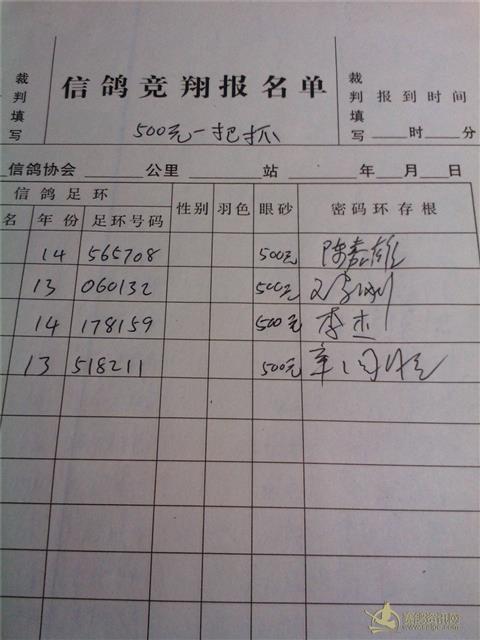 裁判填写 信鸽竞翔报名单 裁判填写 报到时间
500元一把抓 ____时____分
信鸽协会 ______公里 ______站 ____年____月____日
信鸽足环 性别 羽色 眼砂 密码环存根
名 年份 足环号码
14 565708 500元 陈嘉雄
13 060132 500元
14 178159 500元 李杰
13 518211 500元
信鸽资讯网